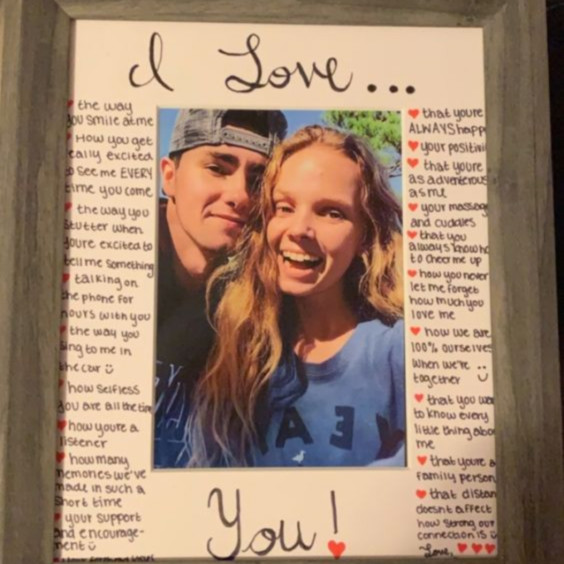 I Love...
the way
you smile at me
How you get
really excited
to see me EVERY
time you come
the way you
stutter when
youre excited to
tell me something
talking on
the phone for
hours with you
the way you
sing to me in
the car
how selfless
you are all the time
how youre a
listener
how many
memories we've
made in such a
short time
your support
and encourage-
ment
that youre
ALWAYS happ
your positivi
that youre
as adventerous
as me
your massag
and cuddles
that you
always know ho
to cheer me up
how you never
let me forget
how much you
love me
how we are
100% ourselves
when we're ..
together
that you wan
to know every
little thing abou
me
that youre a
family person
that distan
doesnt affect
how strong our
connection is
Love,
YEAH
You!